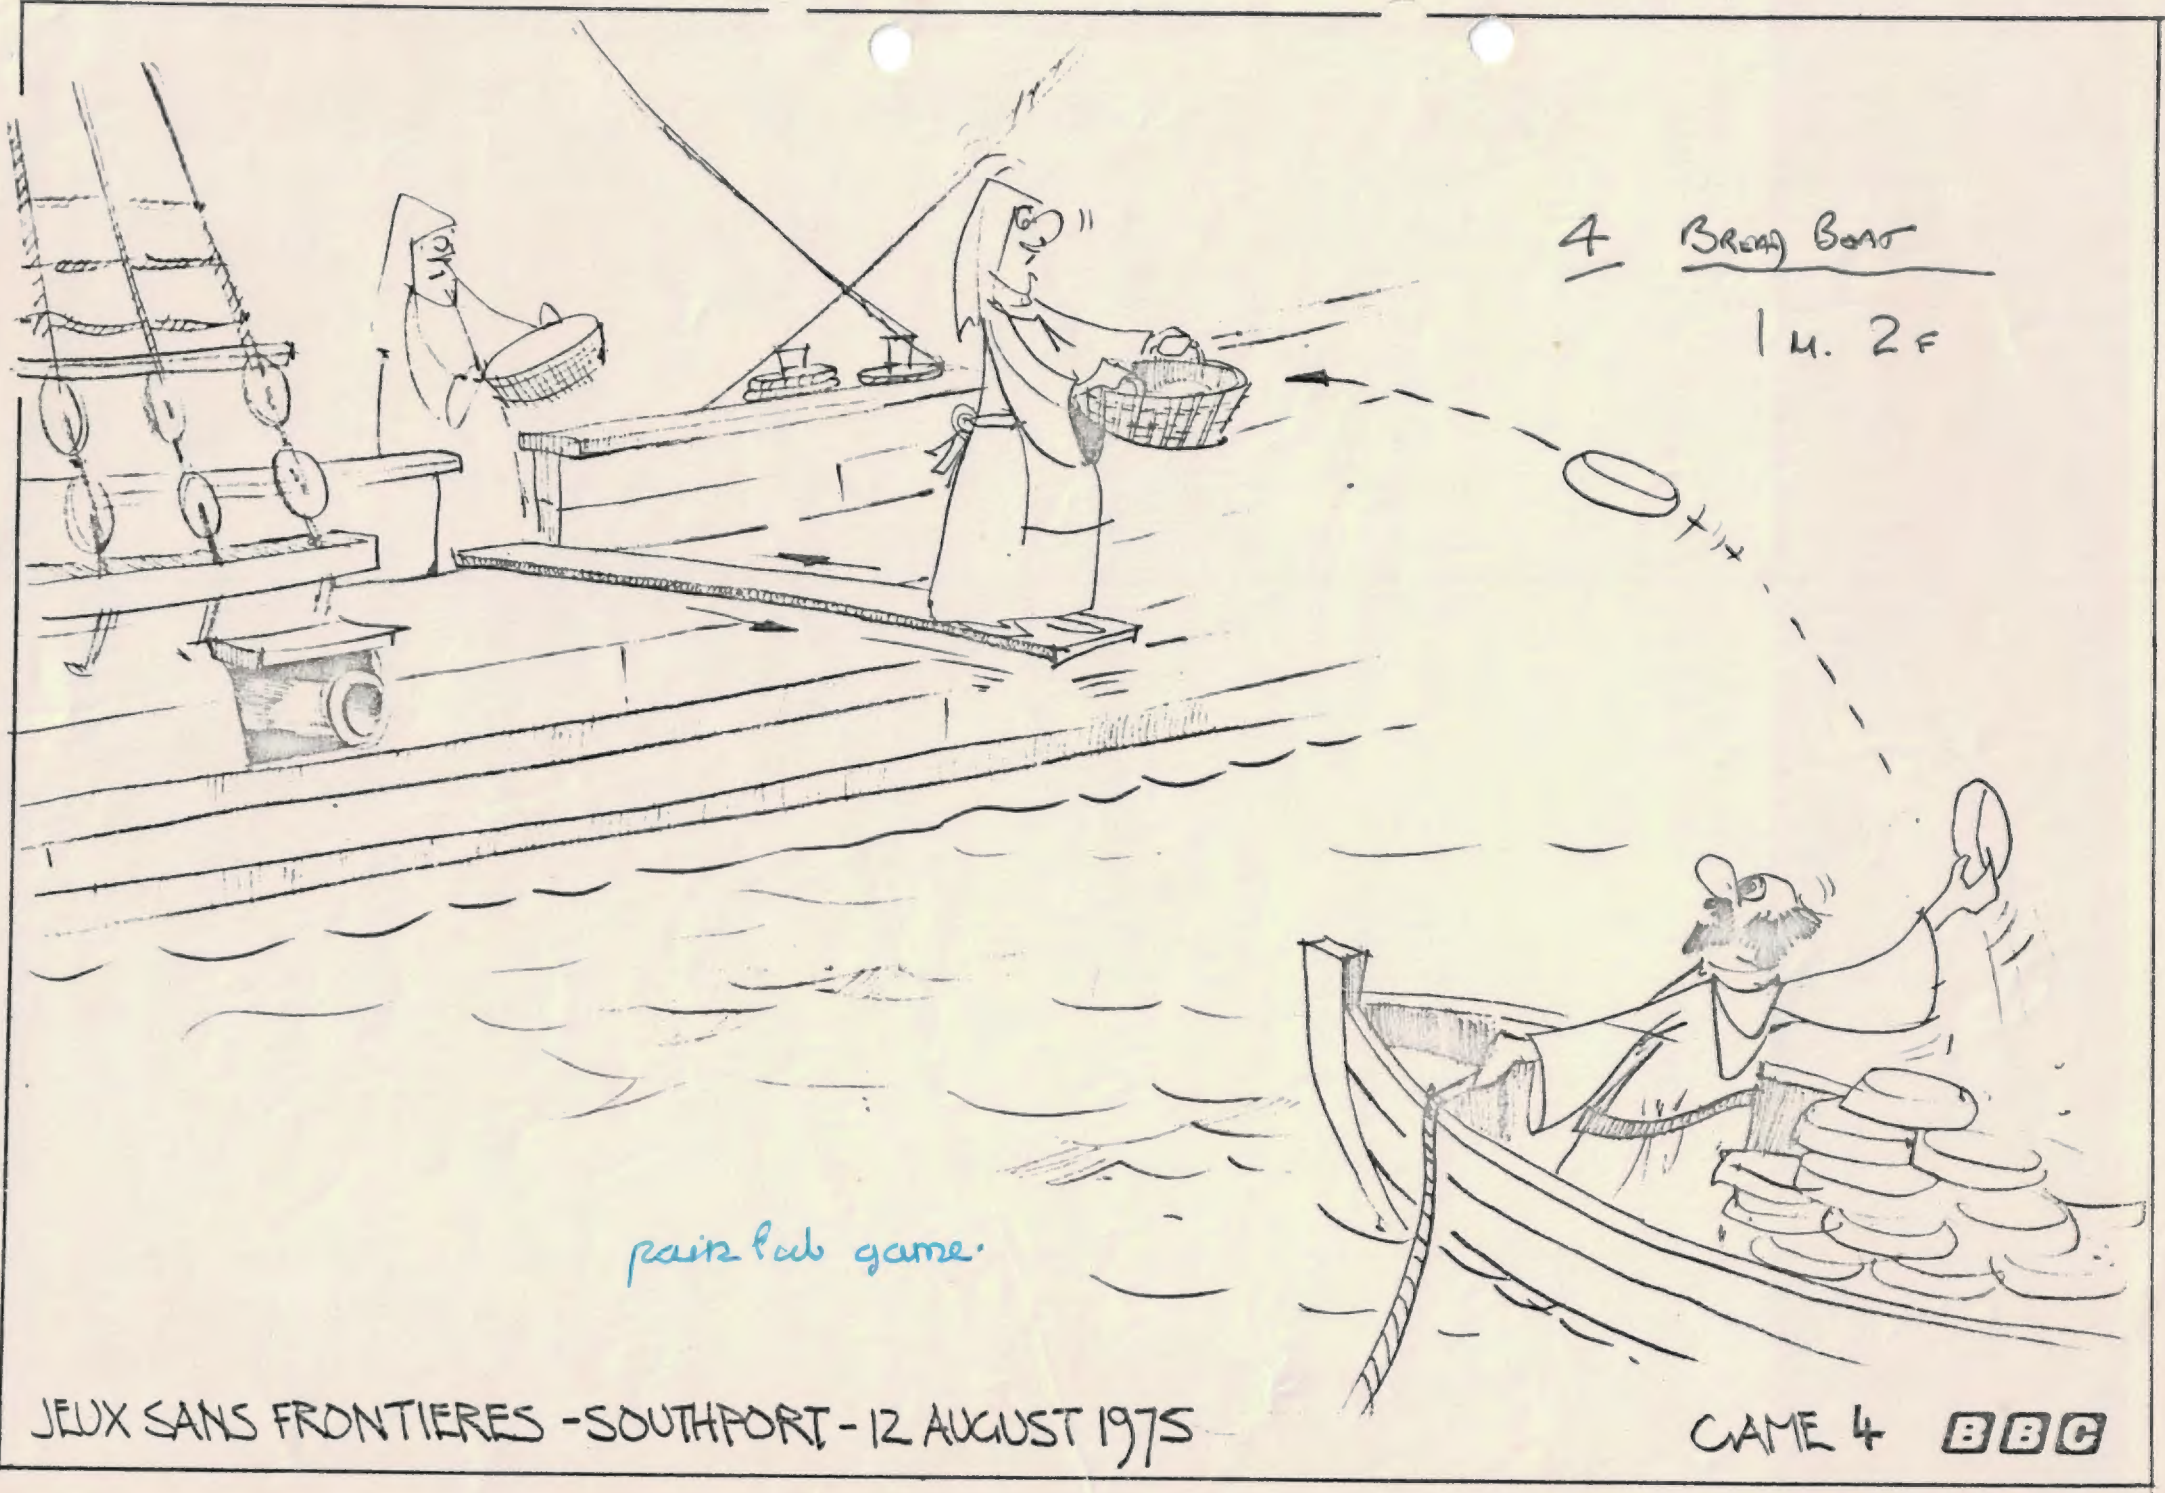 4 BREAD BOAT
1 M. 2 F
game.
JEUX SANS FRONTIERES - SOUTHPORT - 12 AUGUST 1975
GAME 4 BBC